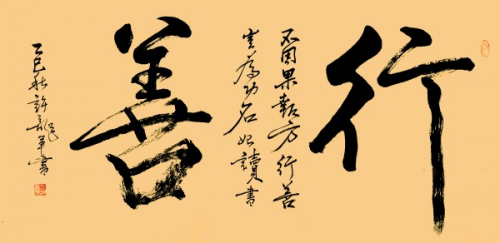 行
不因果報方行善
豈為功名始讀書
善
乙巳秋許龍書